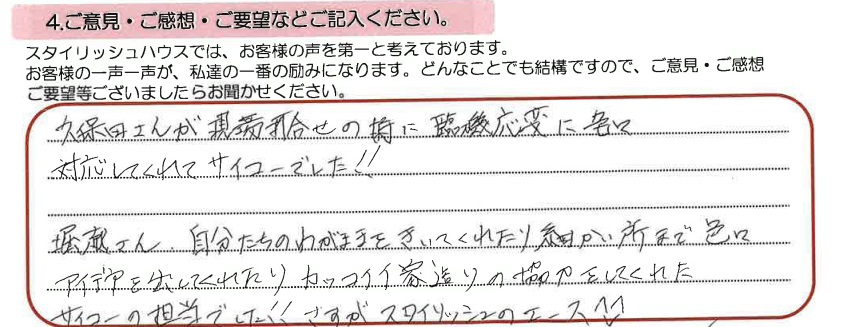 4.ご意見・ご感想・ご要望などご記入ください。
スタイリッシュハウスでは、お客様の声を第一と考えております。
お客様の一声一声が、私達の一番の励みになります。どんなことでも結構ですので、ご意見・ご感想
ご要望等ございましたらお聞かせください。
久保田さんが現場打合せの時に臨機応変に色々
対応してくれてサイコーでした!!
堀蔵さん、自分たちのわがままをきいてくれたり細かい所まで色々
アイデアを出してくれたりカッコイイ家造りの協力をしてくれた
サイコーの担当でした!! さすがスタイリッシュのエース!!